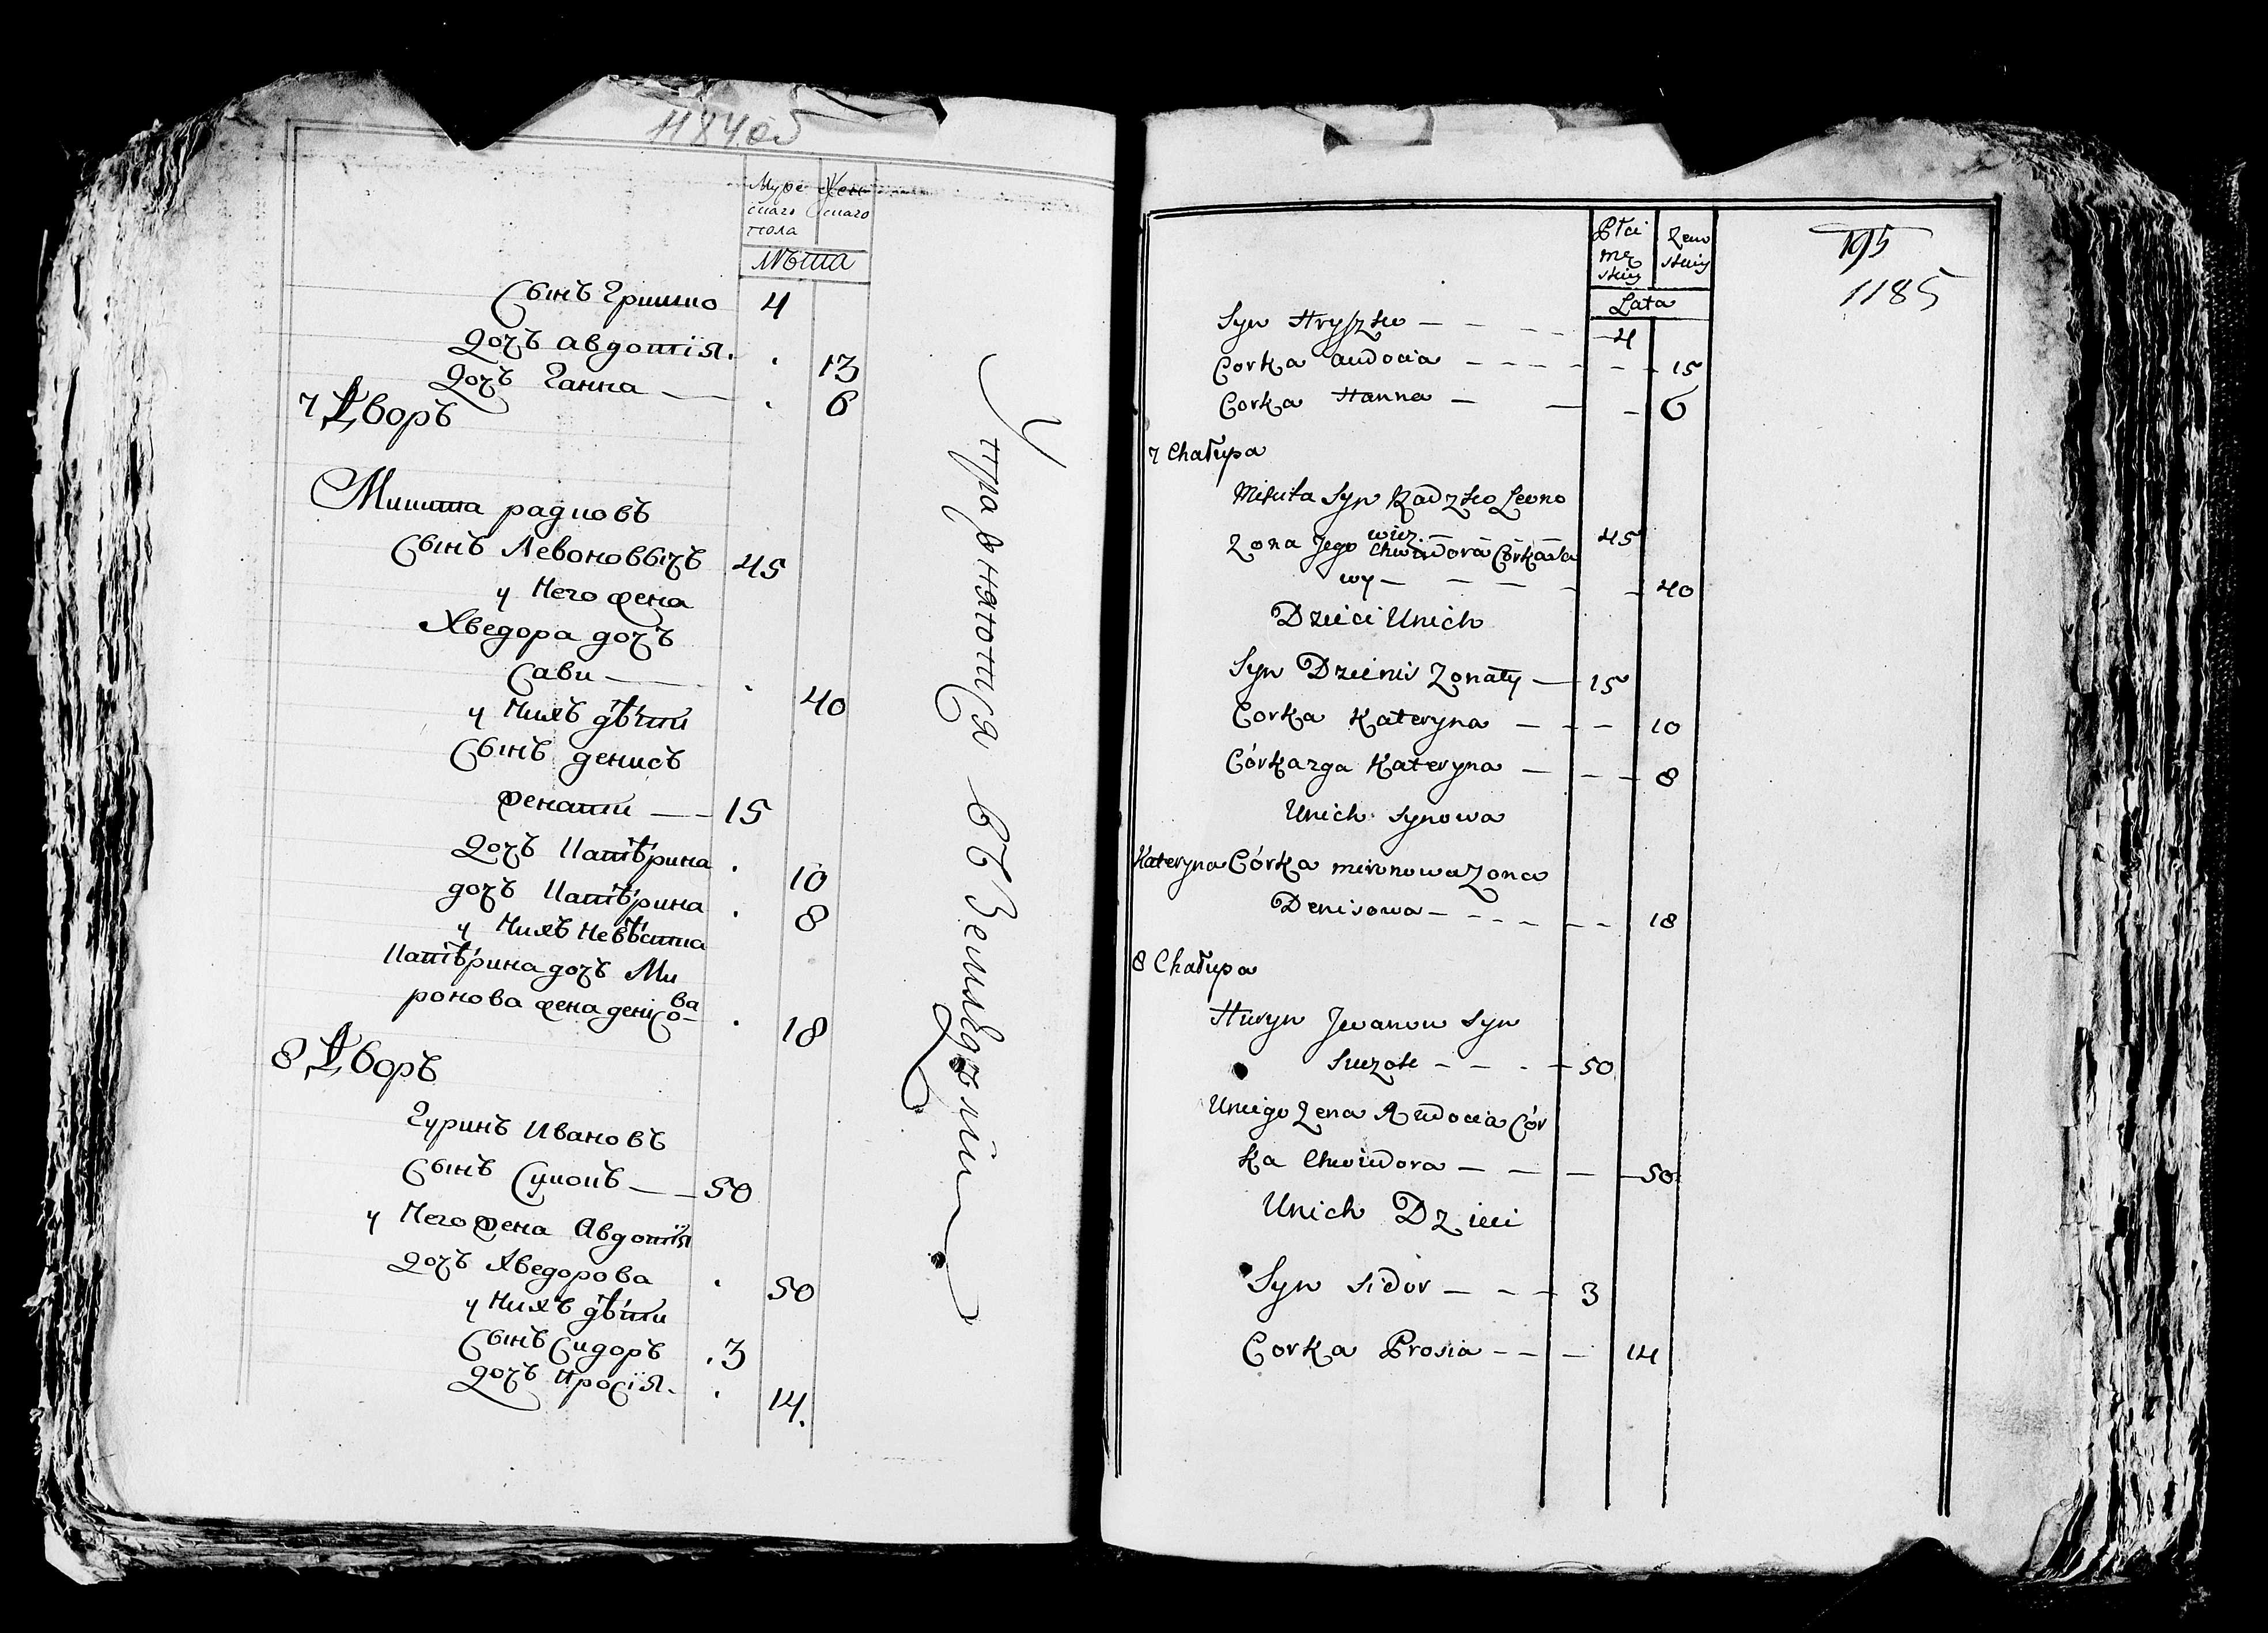 1184 об
Муже Жен
скаго скаго
пола
Лѣта
Сынъ Гришко 4
Дочъ Авдотїя. 13
Дочъ Ганна — 6
7 Дворъ
Микита радковъ
Сынъ Левоновычъ 45
у Него жена
Хведора дочъ
Сави — 40
у Нихъ дѣти
Сынъ денисъ
женати — 15
Дочъ Катѣрина 10
дочъ Катѣрина 8
у Нихъ Невѣстка
Катѣрина дочъ Ми
ронова жена денісо-
ва 18
8 Дворъ
Гуринъ Ивановъ
Сынъ — 50
у Него жена Авдотїя
Дочъ Хведорова 50
у Нихъ дѣти
Сынъ Сидоръ 3
дочъ Просїя. 14.
Упражняютися въ Земледѣліи
195
1185
Płci Zen
mę skiey
skiey
Lata
Syn Hryszko — 4
Corka Audocia — 15
Corka Hanna — 6
7 Chałupa
Mikita Syn Radzko Lewno
wicz — 45
Zona Jego Chwiadora Córka Sa
wy — 40
Dzieci Unich
Syn Dzienis Zonaty — 15
Corka Kateryna — 10
Córka 2ga Kateryna — 8
Unich Synowa
Kateryna Córka mironowa Zona
Denisowa — 18
8 Chałupa
Huryn Jwanow Syn
— 50
Uniego Zena Audocia Cór
ka Chwiedora — 50
Unich Dzieci
Syn Sidor — 3
Corka Prosia — 14